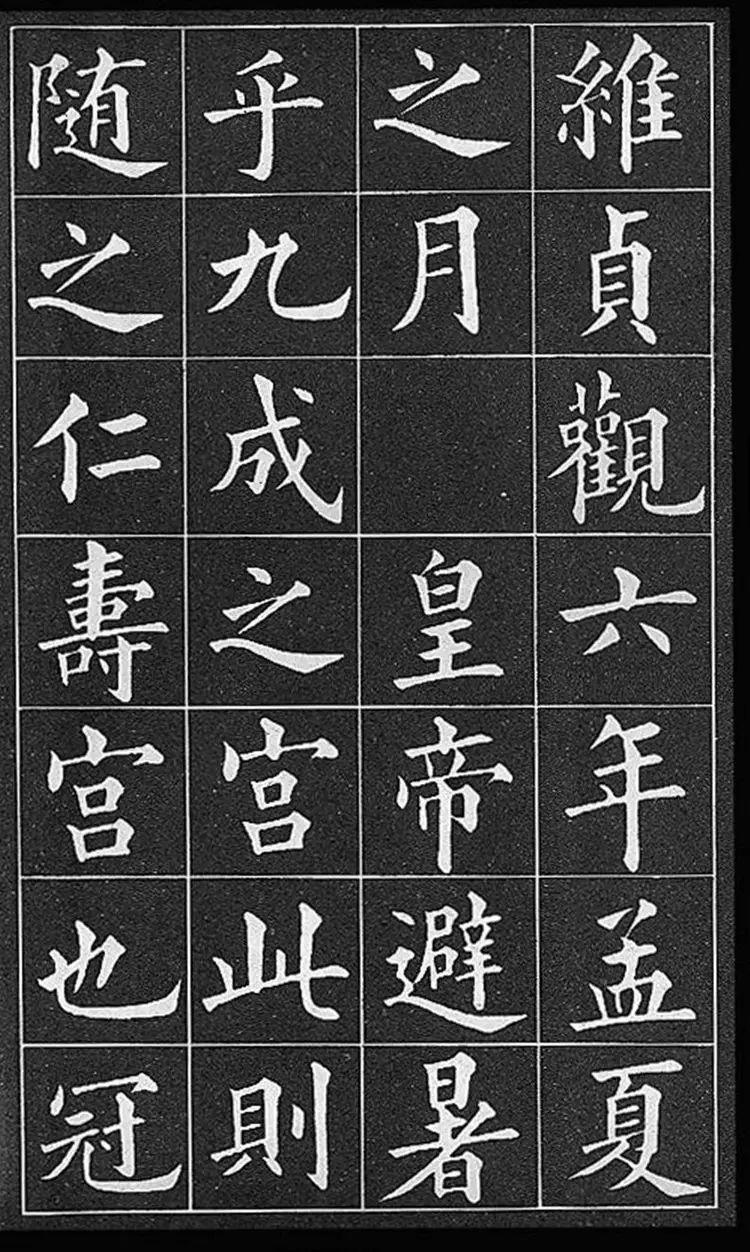 維貞觀六年孟夏
之月 皇帝避暑
乎九成之宮此則
随之仁壽宮也冠